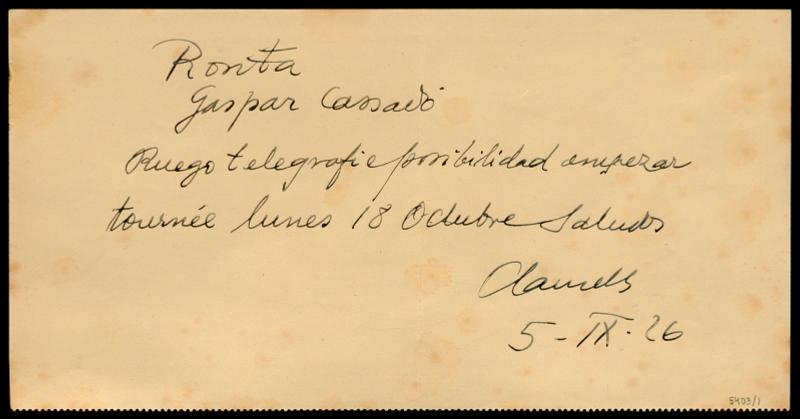 Rosita
Gaspar Cassadó
Ruego telegrafie posibilidad empezar
tournée lunes 18 Octubre Saludos
Clausells
5-IX-26
5403/1